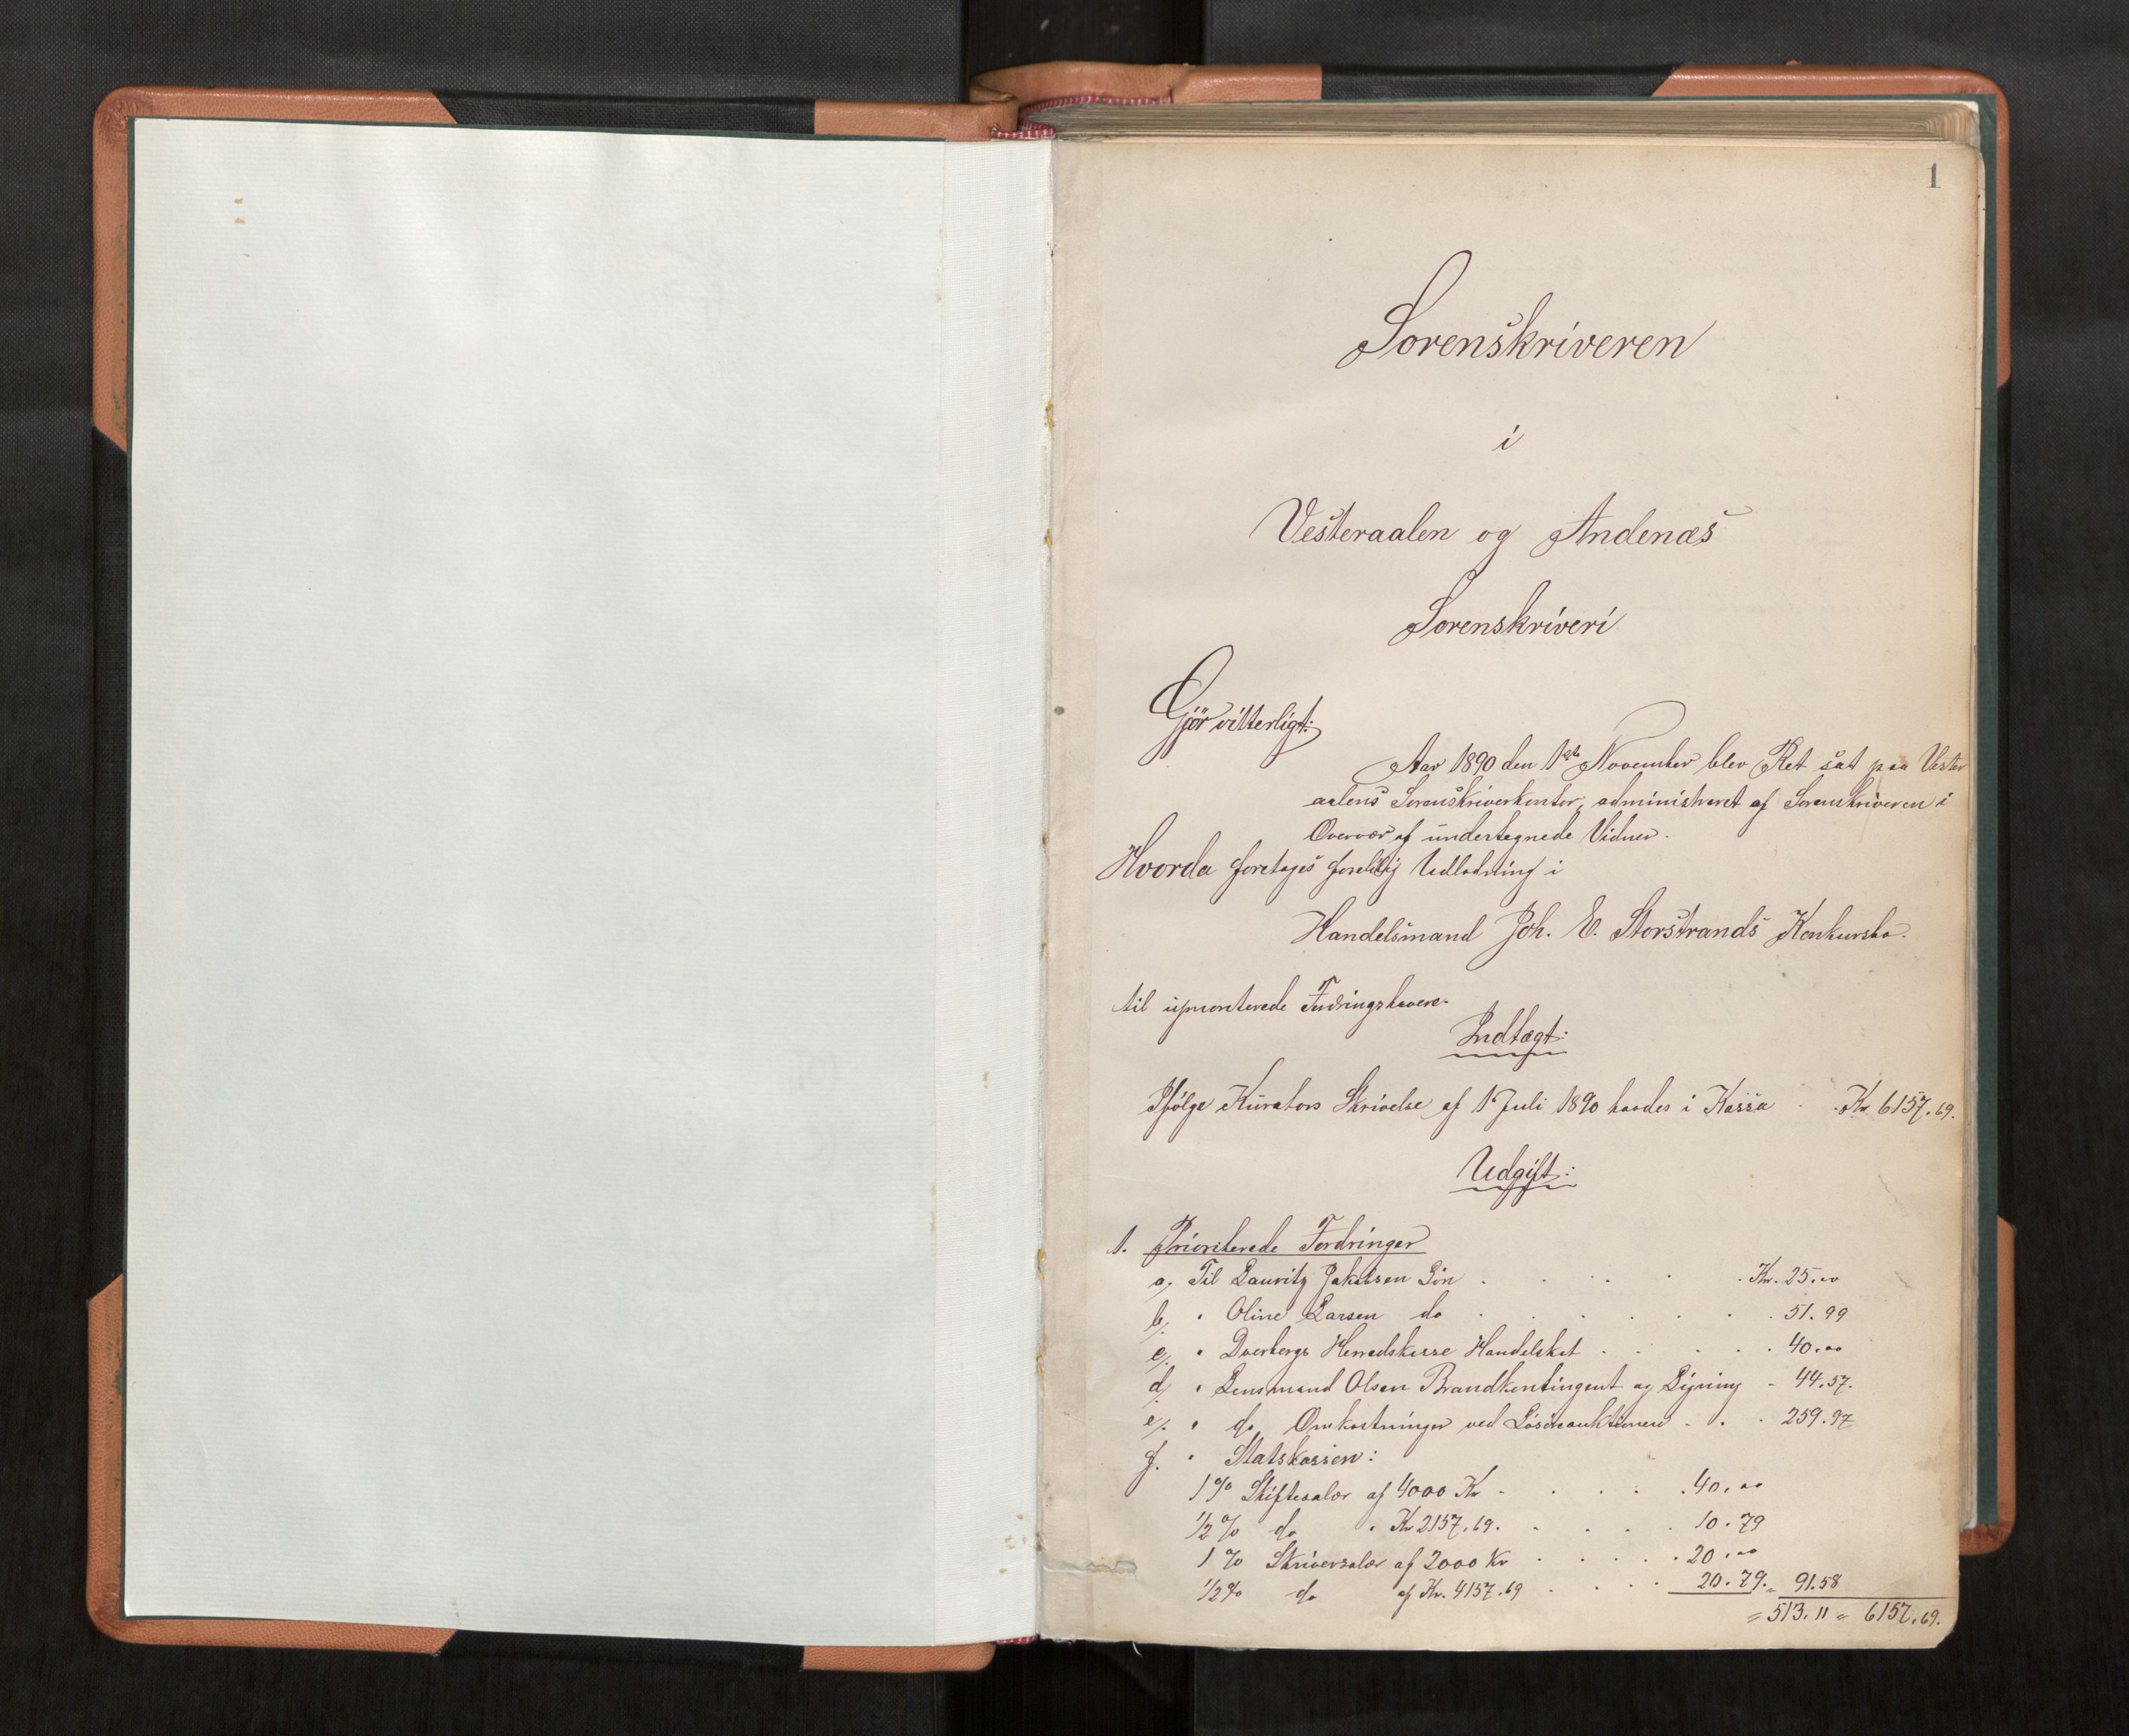 1
Sorenskriveren
i
Vesteraalen og Andenæs
Sorenskriveri
Gjör vitterligt:
Aar 1890 den 1ste November blev Ret sat paa Vester
aalens Sorenskriverkontor, administreret af Sorenskriveren i
Overvær af undertegnede Vidner.
Hvorda foretoges foreløbig Udlodning i
Handelsmand Joh. E. Storstrands Konkursbo.
til uprioriterede Fordringshavere.
Indtægt:
Ifølge Kurators Skrivelse af 1 Juli 1890 havdes i Kassa - Kr 6157.69.
Udgift:
1. Prioriterede Fordringer
a, Til Lauritz Jakobsen Løn . . . . . Kr. 25.00
b, " Oline Larsen do . . . . . . 51.99
c, " Dverbergs Herredskasse Handelskat . . . . . 40.00
d, " Lensmand Olsen Brandkontingent og Ligning - 44.57.
e, " do Omkostninger ved Løsøreauktionen - . . 259.97
f. " Statskassen:
1 % Skiftesalær af 4000 Kr - . . . . 40.00
1/2 % do " Kr 2157.69. . . . . 10.79
1 % Skriversalær af 2000 Kr . . . . . 20.00
1/2 % do af Kr. 4157.69 . . . . 20.79. = 91.58
= 513.11 = 6157.69.